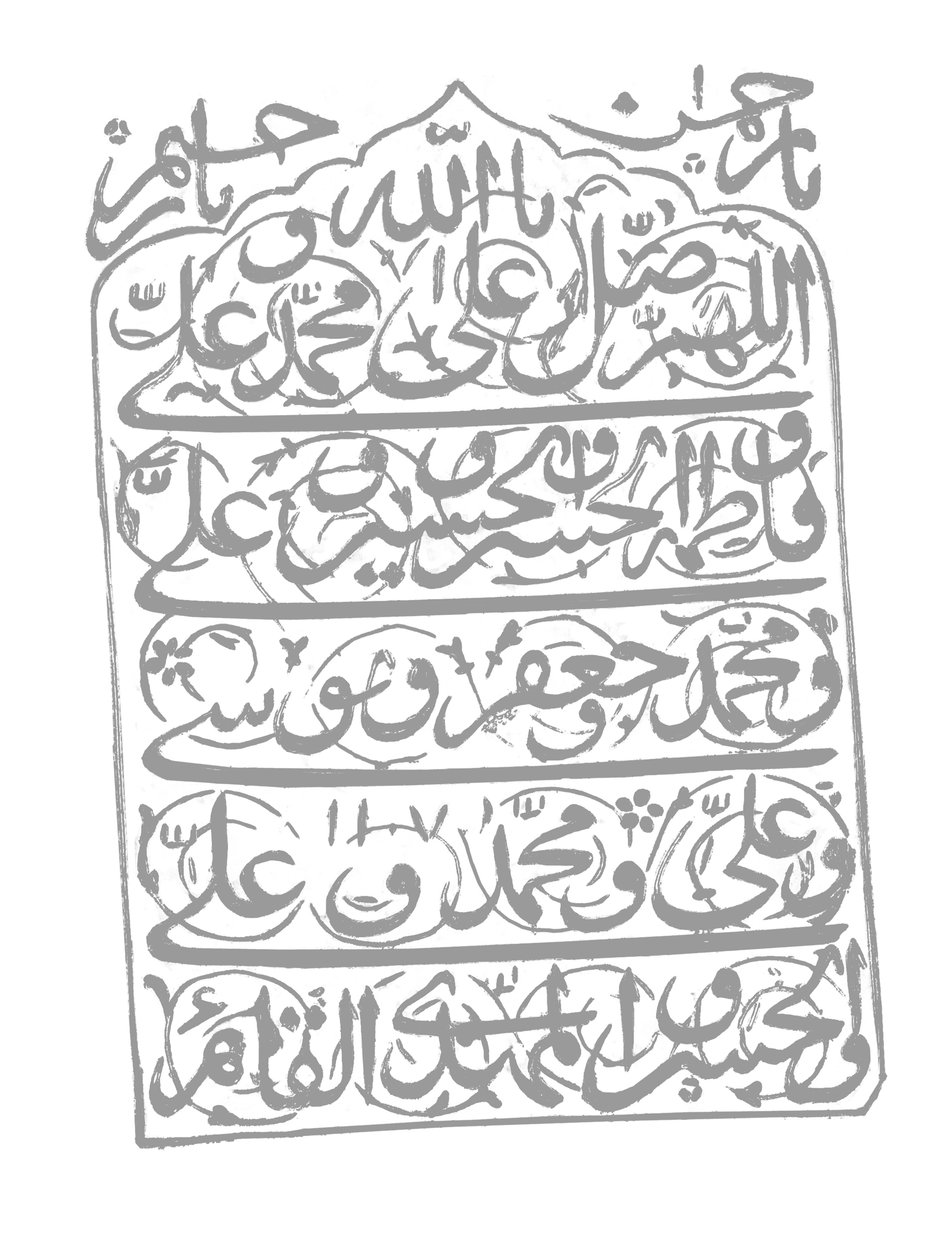 يا الله
اللهم صل على محمد و علي
و فاطمة و الحسن و الحسين و علي
و محمد و جعفر و موسى
و علي و محمد و علي ١١٠٧
و الحسن و المهدي القائم